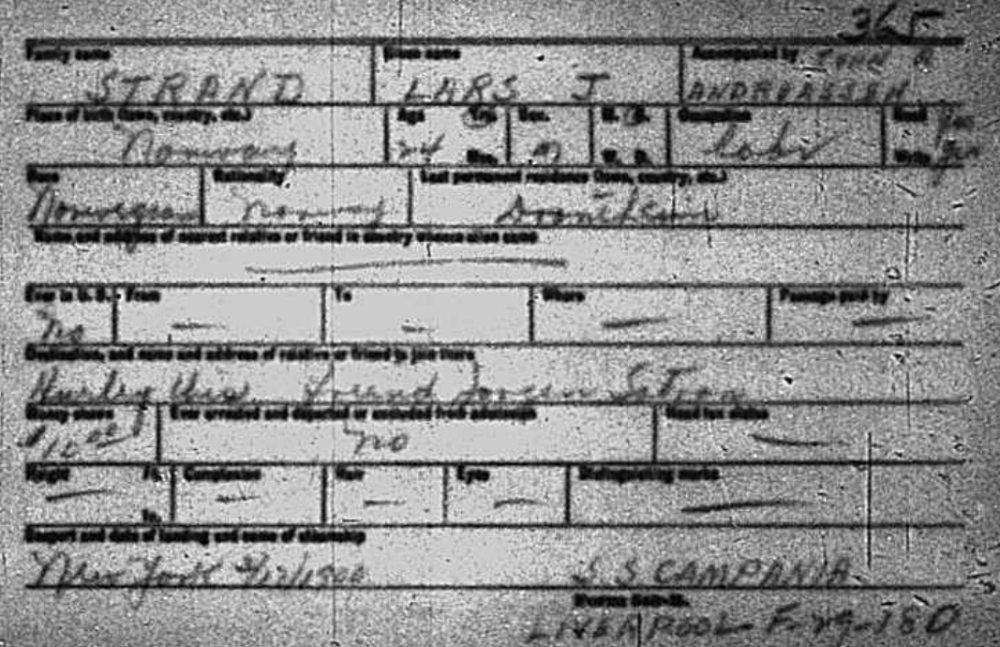 365
Family name Given name Accompanied by JOHN A
STRAND LARS J ANDREASSEN
Place of birth (town, country, etc.) Age Yrs. Sex. M. S. Occupation Read Yes
Norway 24 Mos. M W. D. labr Write Yes
Race Nationality Last permanent residence (town, country, etc.)
Norwegian Norway
Name and address of nearest relative or friend in country whence alien came
Ever in U. S. From To Where Passage paid by
No — — — —
Destination, and name and address of relative or friend to join there
Hurley Wis. Friend
Money shown Ever arrested and deported or excluded from admission Head tax status
$12 00 No —
Height Ft. Complexion Hair Eyes Distinguishing marks
— — — — —
In.
Seaport and date of landing and name of steamship
New York /1900 S S CAMPANIA
LIVERPOOL F-29-180